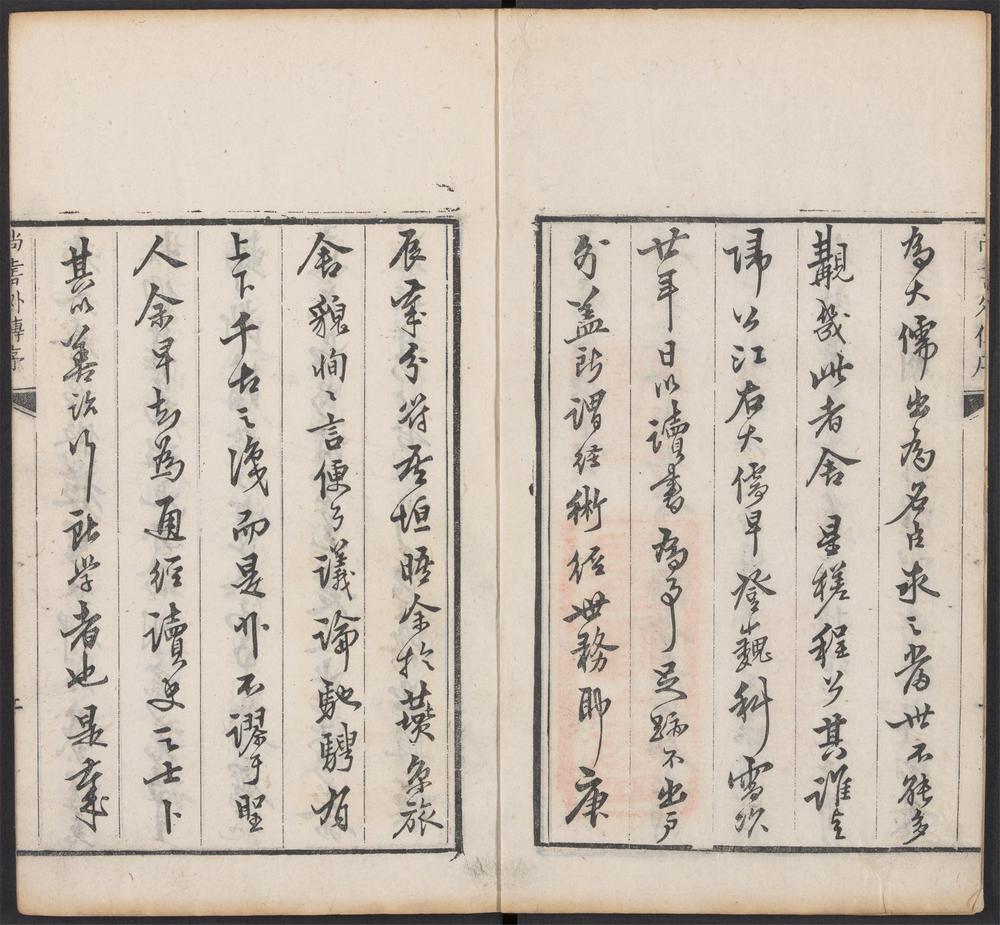 為大儒出為名臣求之當世不能多
覯幾此者舍星槎程公其誰與
歸公江右大儒早登巍科雪次
廿年日以讀書為事足跡不出戶
外蓋所謂經術經世務耶庚
辰歲分符吾垣晤余於黃泉旅
舍貌恂〻言便〻議論馳騁有
上下千古之識而是非不謬乎聖
人余早知為通經讀史之士卜
其以善治行於學者也是歲
尚書外傳序